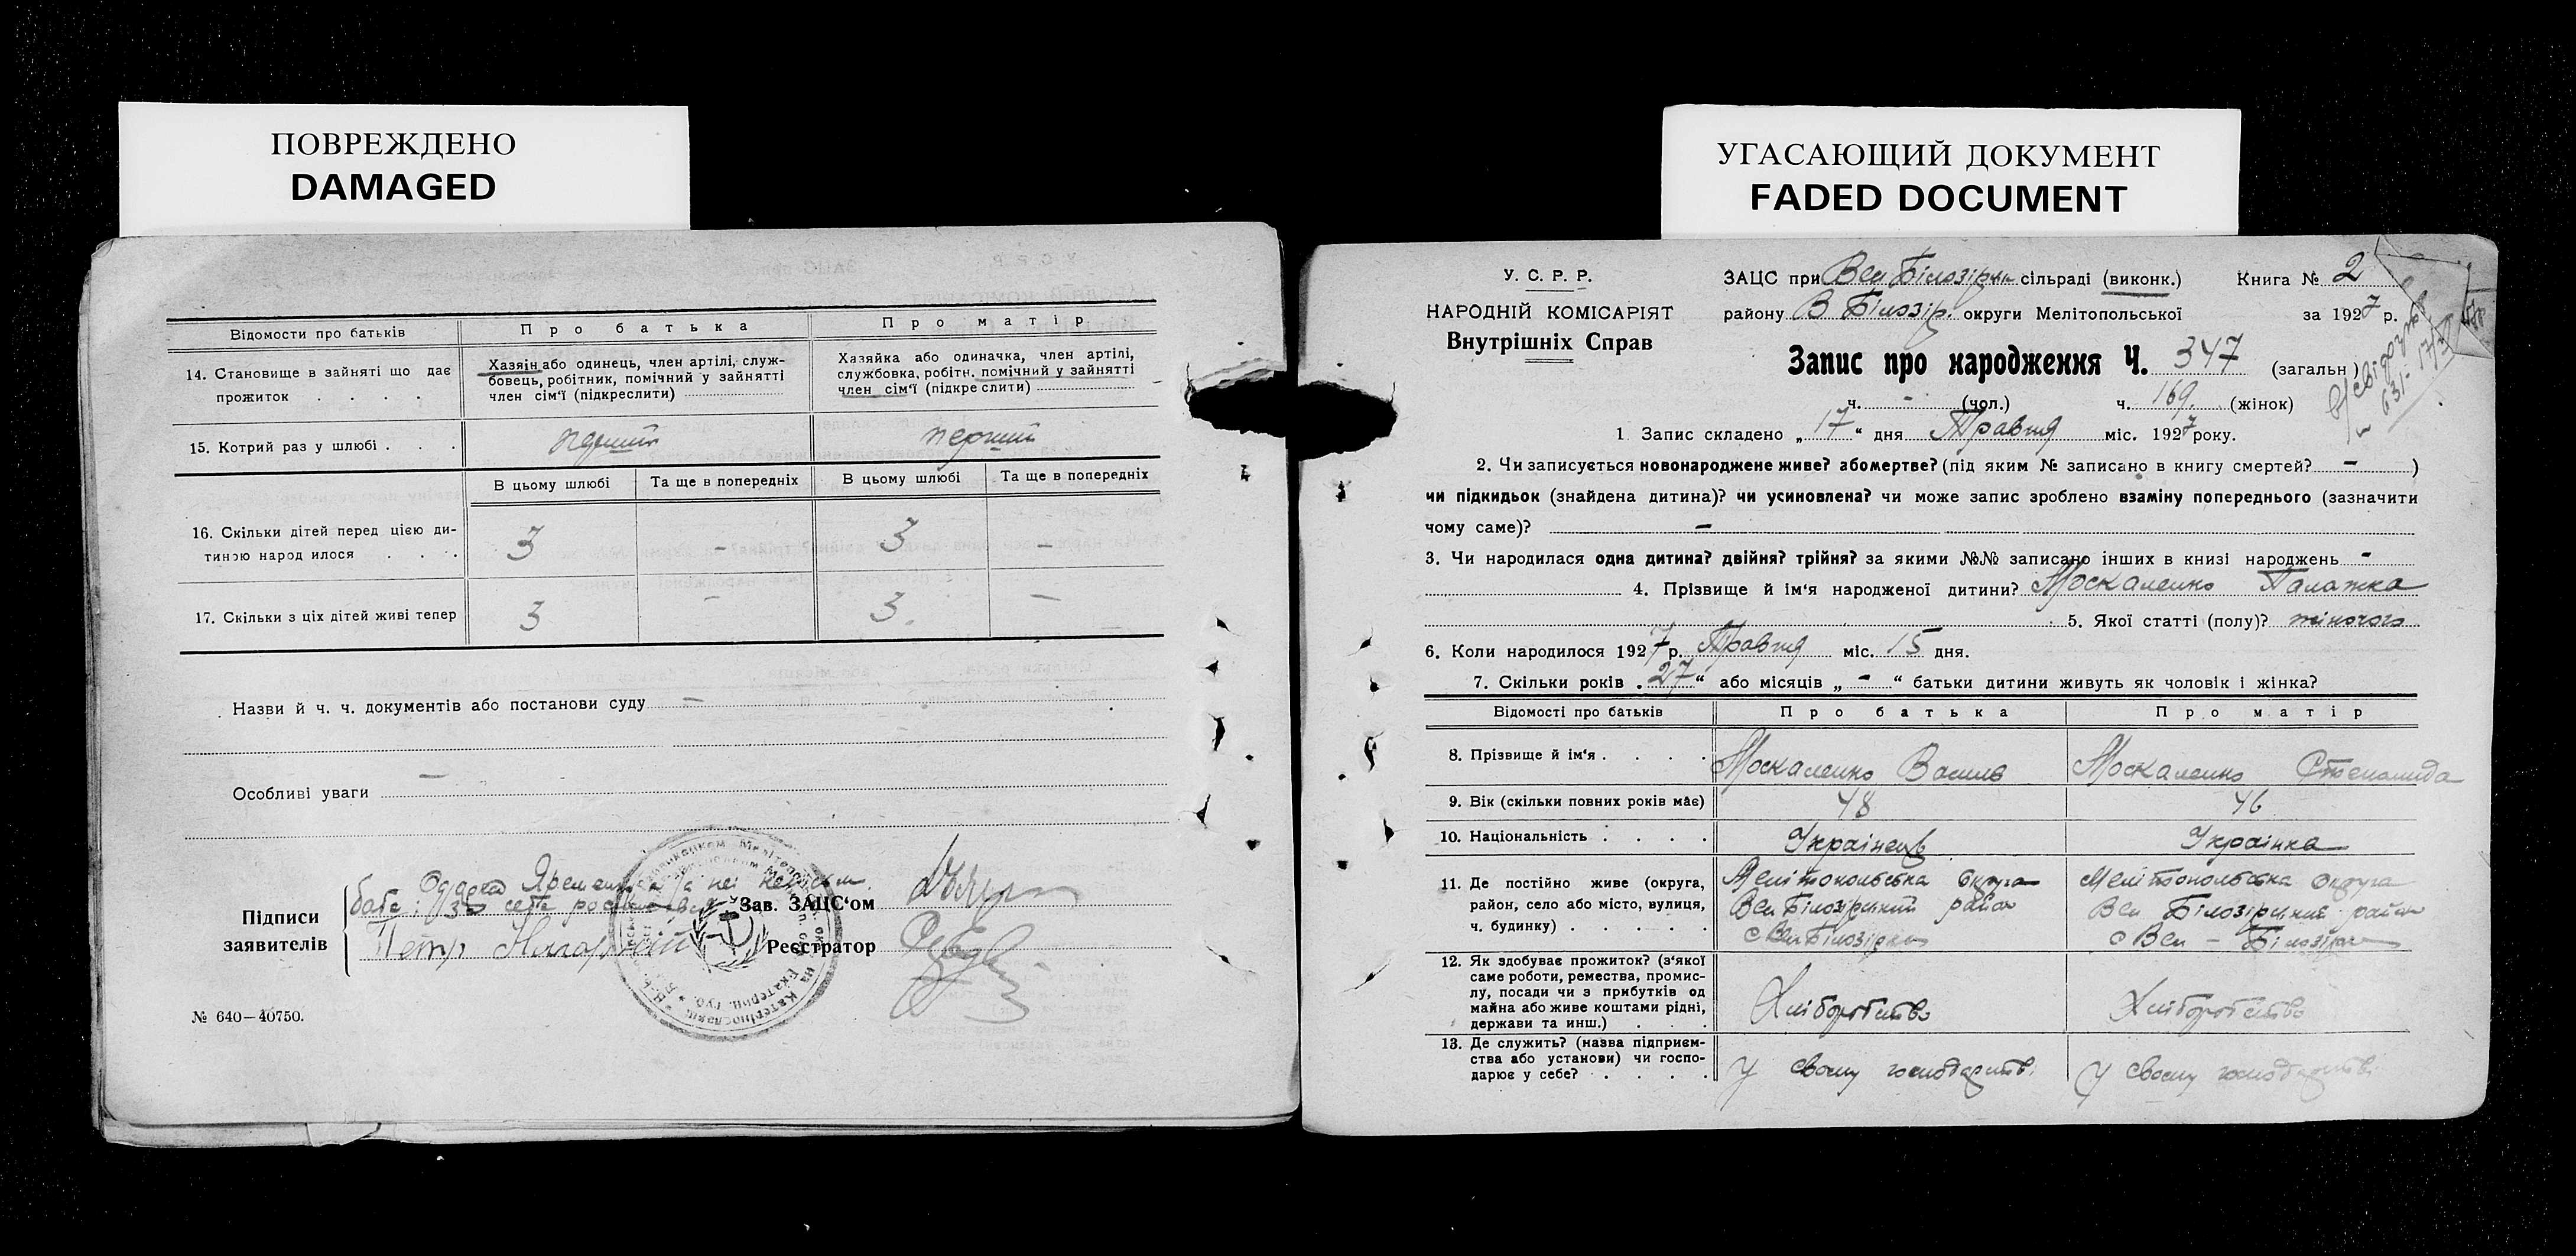 ПОВРЕЖДЕНО
DAMAGED
Відомости про батьків
Про батька
Про матір
14. Становище в зайняті що дає прожиток . . . .
Хазяін або одинець, член артілі, служ-
бовець, робітник, помічний у зайнятті
член сім'ї (підкреслити)
Хазяйка або одиначка, член артілі,
службовка, робітн. помічний у зайнятті
член сім'ї (підкреслити)
15. Котрий раз у шлюбі . . .
перший
В цьому шлюбі
Та ще в попередніх
В цьому шлюбі
Та ще в попередніх
16. Скільки дітей перед цією ди-
тиною народилося . . .
3 - 3 -
17. Скільки з ціх дітей живі тепер
3 - 3. -
Назви й ч. ч. документів або постанови суду -
Особливі уваги -
Підписи
заявителів
баба: Одарка
за себе
Петр
Зав. ЗАЦС'ом
Реєстратор
№ 640—40750.
УГАСАЮЩИЙ ДОКУМЕНТ
FADED DOCUMENT
У. С. Р. Р.
НАРОДНІЙ КОМІСАРІЯТ
Внутрішніх Справ
ЗАЦС при Вел Білозірск сільраді (виконк.) Книга № 2
району В Білозір. округи Мелітопольської за 1927 р.
Запис про народження Ч. 347 (загальн)
ч. - (чол.) ч. 169. (жінок)
1 Запис складено „17“ дня Травня міс. 1927 року.
2. Чи записується новонароджене живе? або мертве? (під яким № записано в книгу смертей? - )
чи підкидьок (знайдена дитина)? чи усиновлена? чи може запис зроблено взаміну попереднього (зазначити
чому саме)? -
3. Чи народилася одна дитина? двійня? трійня? за якими №№ записано інших в книзі народжень -
4. Прізвище й ім'я народженої дитини? Москаленко Палажка
5. Якої статті (полу)? жіночого
6. Коли народилося 1927 р. Травня міс. 15 дня.
7. Скільки років „27“ або місяців „-“ батьки дитини живуть як чоловік і жінка?
Відомості про батьків
Про батька
Про матір
8. Прізвище й ім'я . . . .
Москаленко Василь
Москаленко Степанида
9. Вік (скільки повних років має)
48
46
10. Національність . . . .
Украінець
Украінка
11. Де постійно живе (округа,
район, село або місто, вулиця,
ч. будинку) . . . . .
Мелітопольська округа
Вел Білозірський район
с Вел Білозірка
Мелітопольська округа
Вел Білозірський район
с Вел - Білозірка
12. Як здобуває прожиток? (з'якої
саме роботи, ремества, промис-
лу, посади чи з прибутків од
майна або живе коштами рідні,
держави та инш.) . . .
Хліборобство
Хліборобство
13. Де служить? (назва підприєм-
ства або установи) чи госпо-
дарює у себе? . . . .
У своему господарстві
У своему господарстві